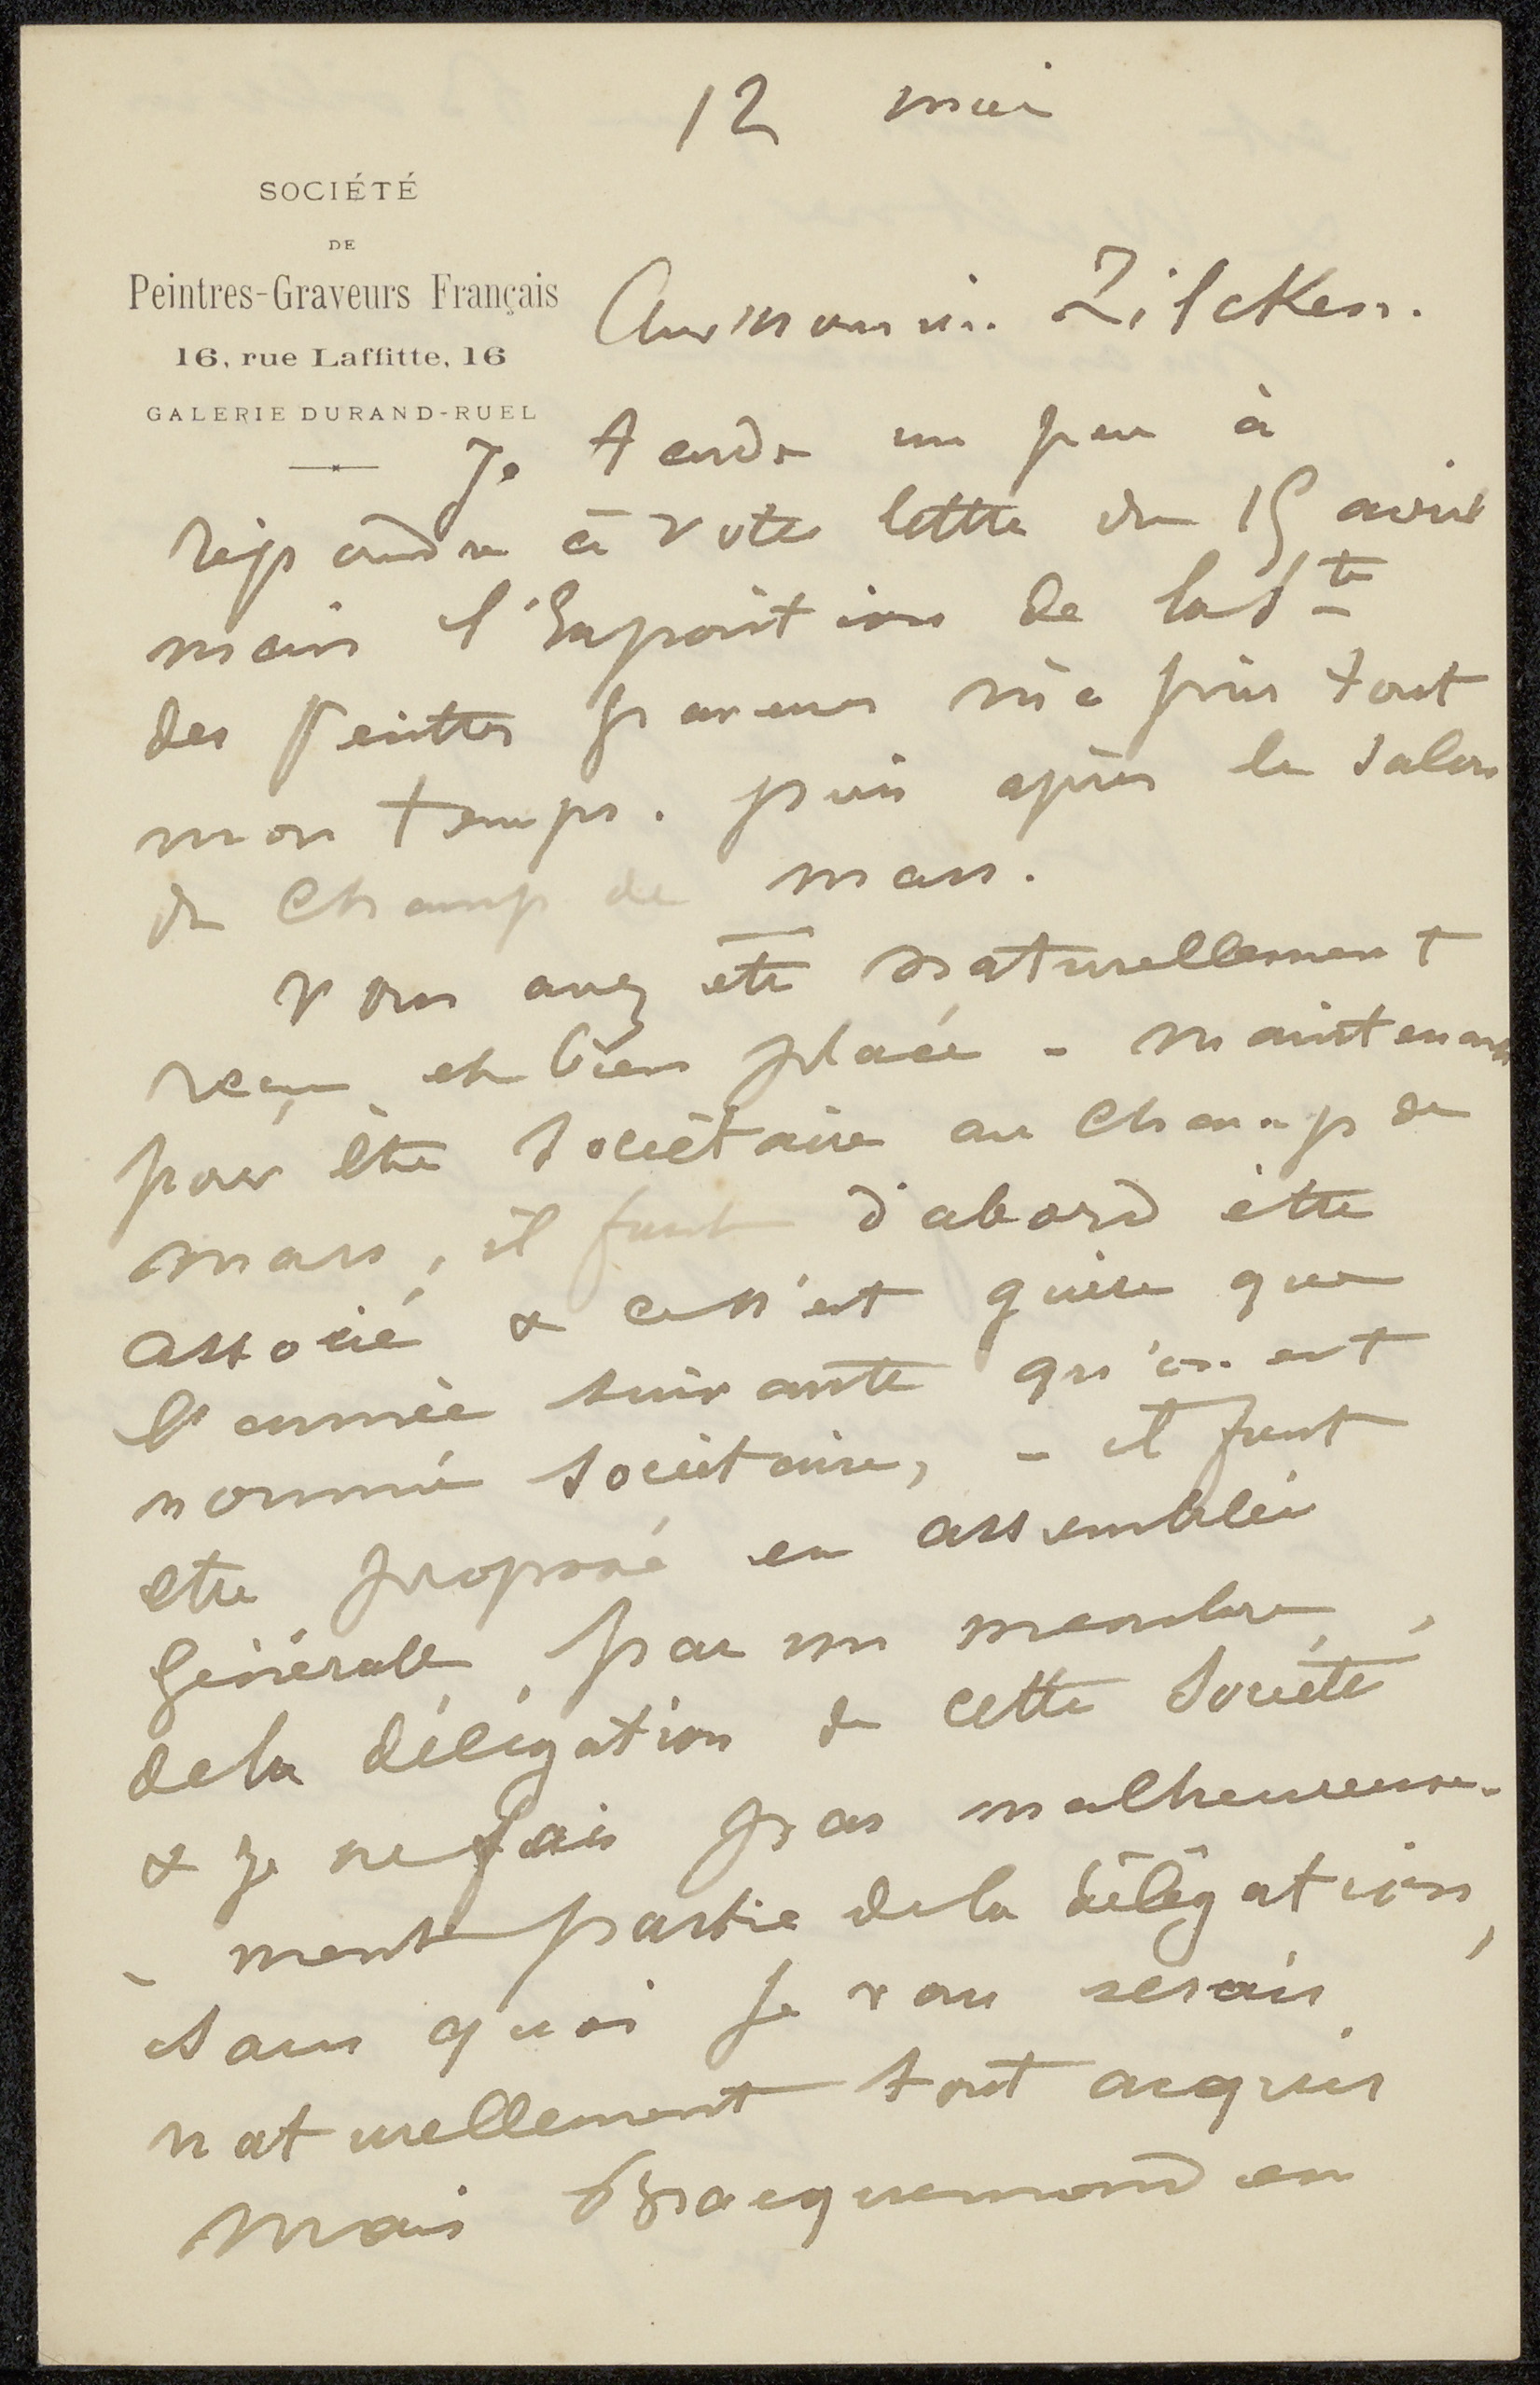 12 mai
SOCIÉTÉ
DE
Peintres-Graveurs Français
16, rue Laffitte, 16
GALERIE DURAND-RUEL
Cher Monsieur Zilcken.
Je tarde un peu à
répondre à votre lettre du 15 avril
mais l'Exposition de la Sté
des Peintres graveurs m'a pris tout
mon temps. puis après le Salon
du Champ de mars.
Vous avez été naturellement
reçu et bien placé - maintenant
pour être Sociétaire au Champ de
mars, il faut d'abord être
associé & ce n'est guère que
l'année suivante qu'on est
nommé Sociétaire, - il faut
etre proposé en assemblée
Générale par un membre
de la délégation de cette Société,
& je ne fais pas malheureuse-
- ment partie de la délégation,
sans quoi je vous serais
naturellement tout acquis
Mais Bracquemond en